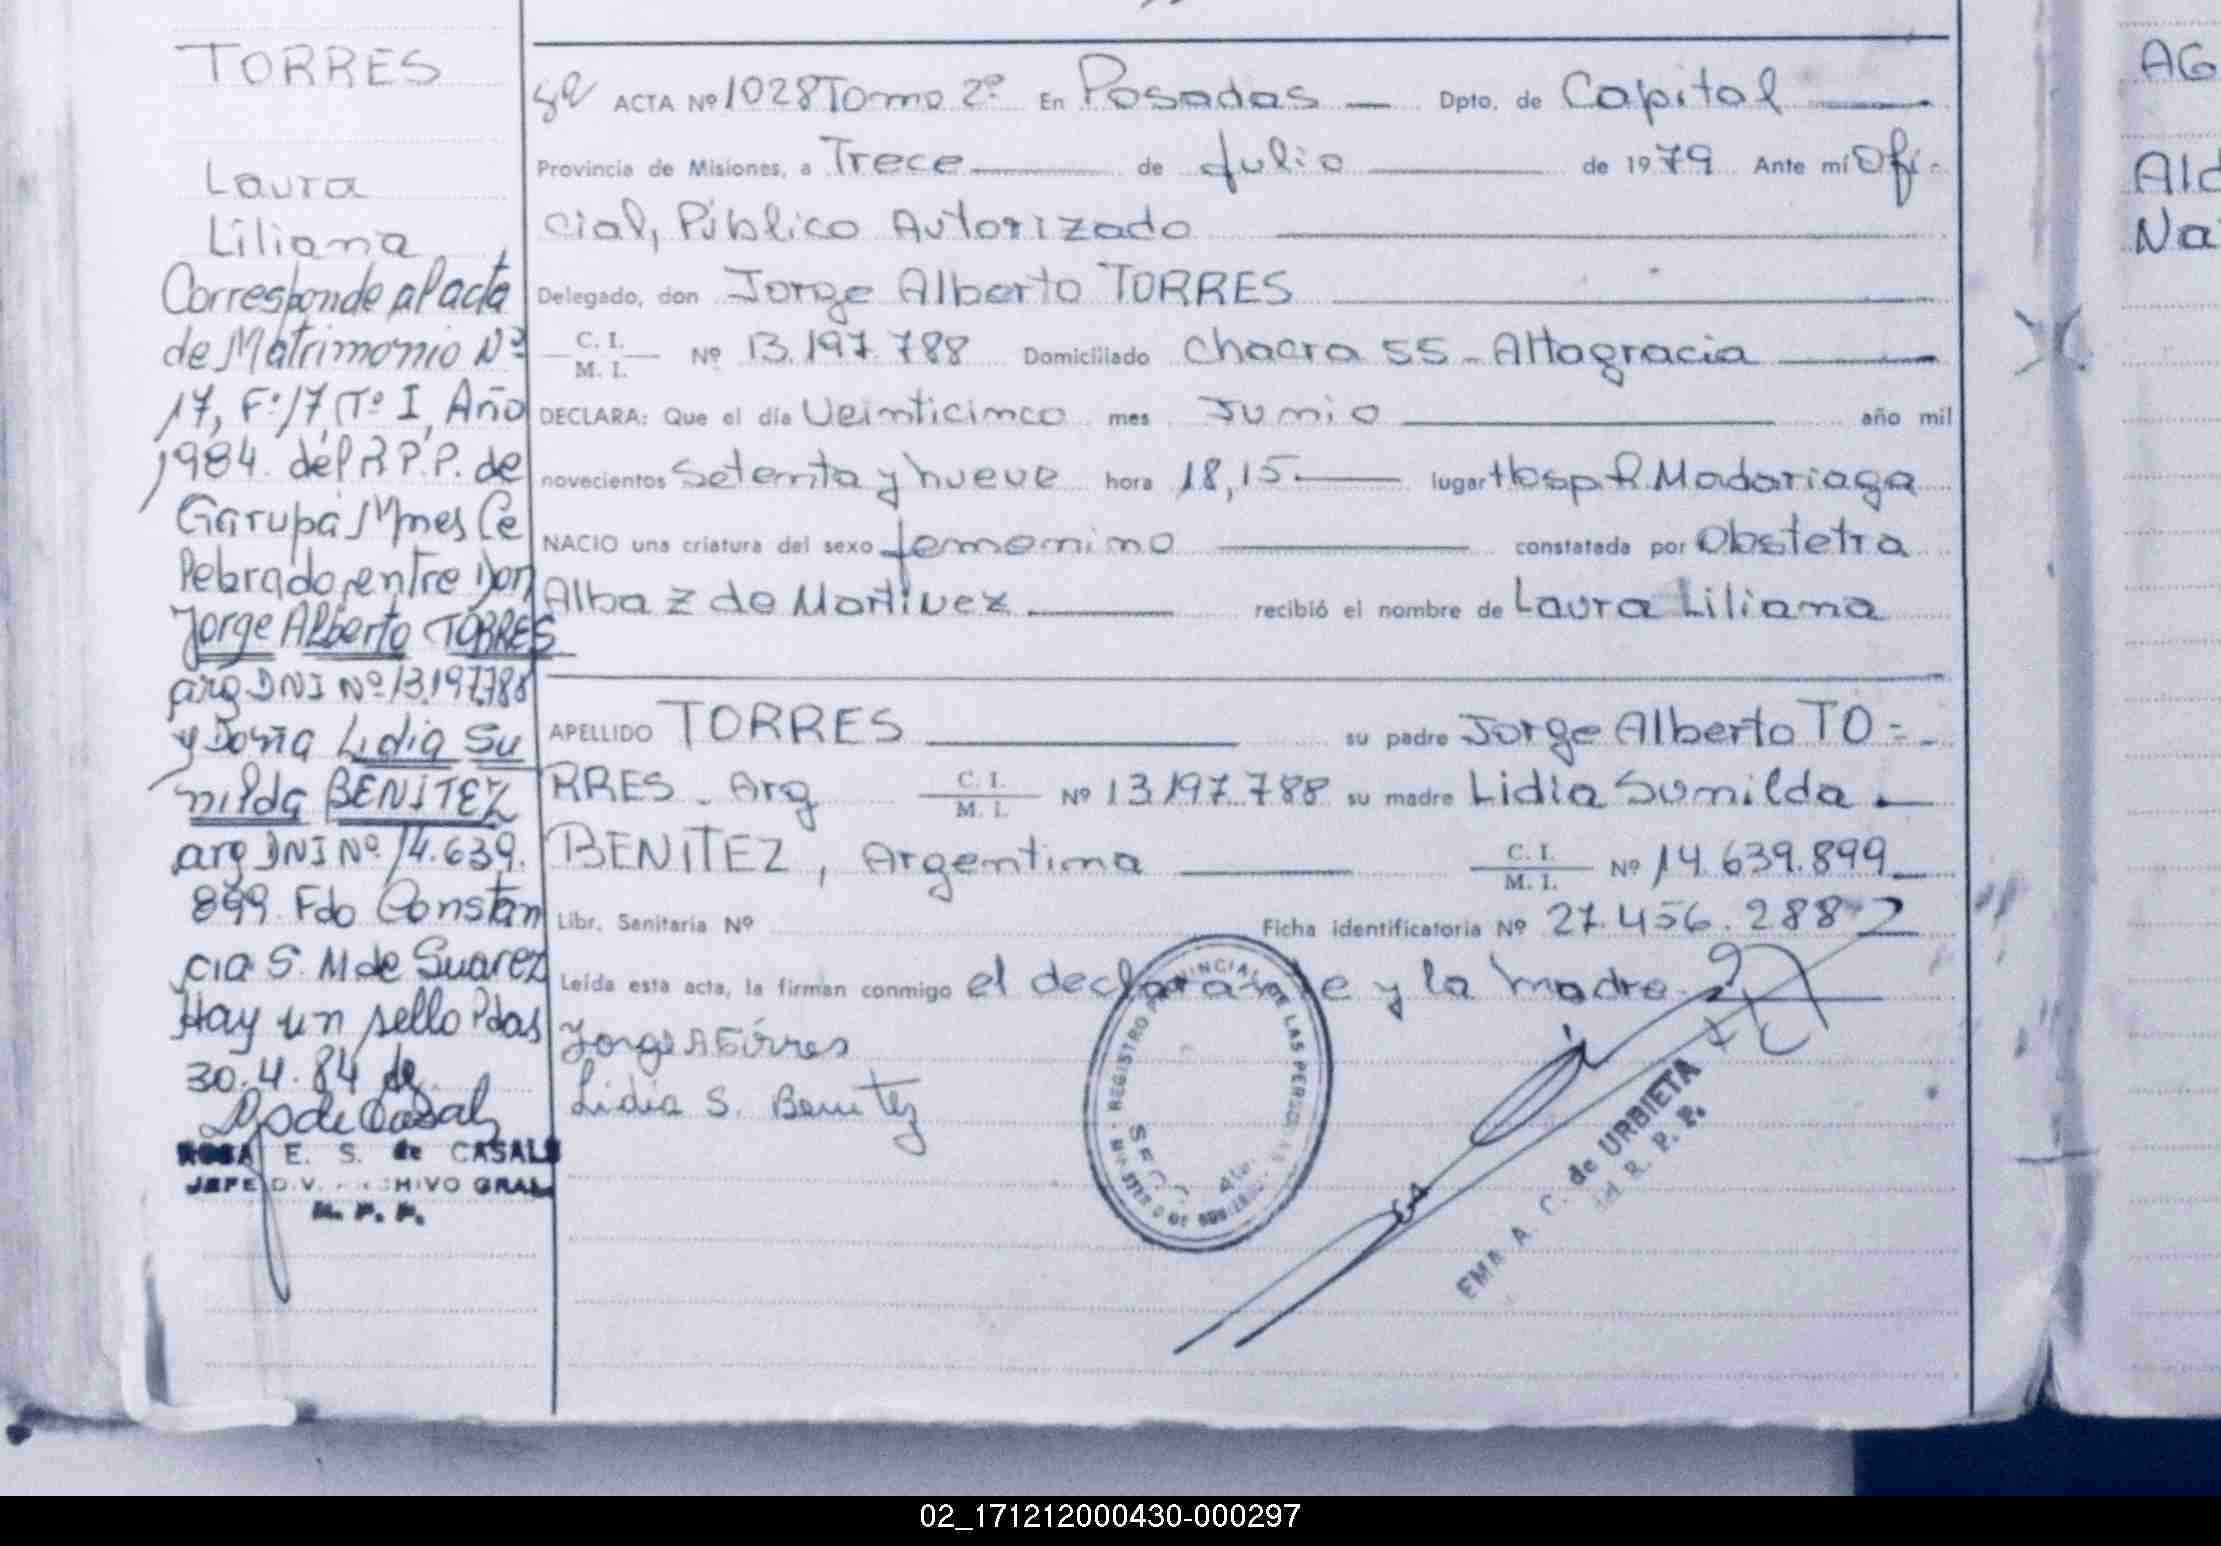 TORRES
Laura
Liliana
Corresponde al acta
de Matrimonio Nº
17, Fº 17 Tº I, Año
1984. del R.P.P. de
Garupá Mnes Ce
lebrado entre Don
Jorge Alberto TORRES
arg DNI Nº 13.197.788
y Doña Lidia Su
nilda BENITEZ
arg DNI Nº 14.639.
899. Fdo Constan
cia S. M de Suarez
Hay un sello Pdas
30.4.84
ROSA E. S. de CASALS
JEFE DIV. ARCHIVO GRAL
R. P. P.
ACTA Nº 1028 Tomo 2º En Posadas Dpto. de Capital
Provincia de Misiones, a Trece de Julio de 1979 Ante mí Ofi-
cial, Público Autorizado
Delegado, don Jorge Alberto TORRES
C. I. M. I. Nº 13.197.788 Domiciliado Chacra 55 - Altagracia
DECLARA: Que el día Veinticinco mes Junio año mil
novecientos Setenta y nueve hora 18,15 lugar Hosp R. Madariaga
NACIO una criatura del sexo femenino constatada por Obstetra
Alba Z de Martinez recibió el nombre de Laura Liliana
APELLIDO TORRES su padre Jorge Alberto TO=
RRES - Arg C. I. M. I. Nº 13.197.788 su madre Lidia Sunilda
BENITEZ, Argentina C. I. M. I. Nº 14.639.899
Libr. Sanitaria Nº Ficha identificatoria Nº 27.456.288
Leída esta acta, la firman conmigo el declarante y la madre
Jorge A Torres
Lidia S. Benitez
REGISTRO PROVINCIAL DE LAS PERSONAS
EMA A. C. de URBIETA
R. P. P.
AG
Ald
Na
02_171212000430-000297